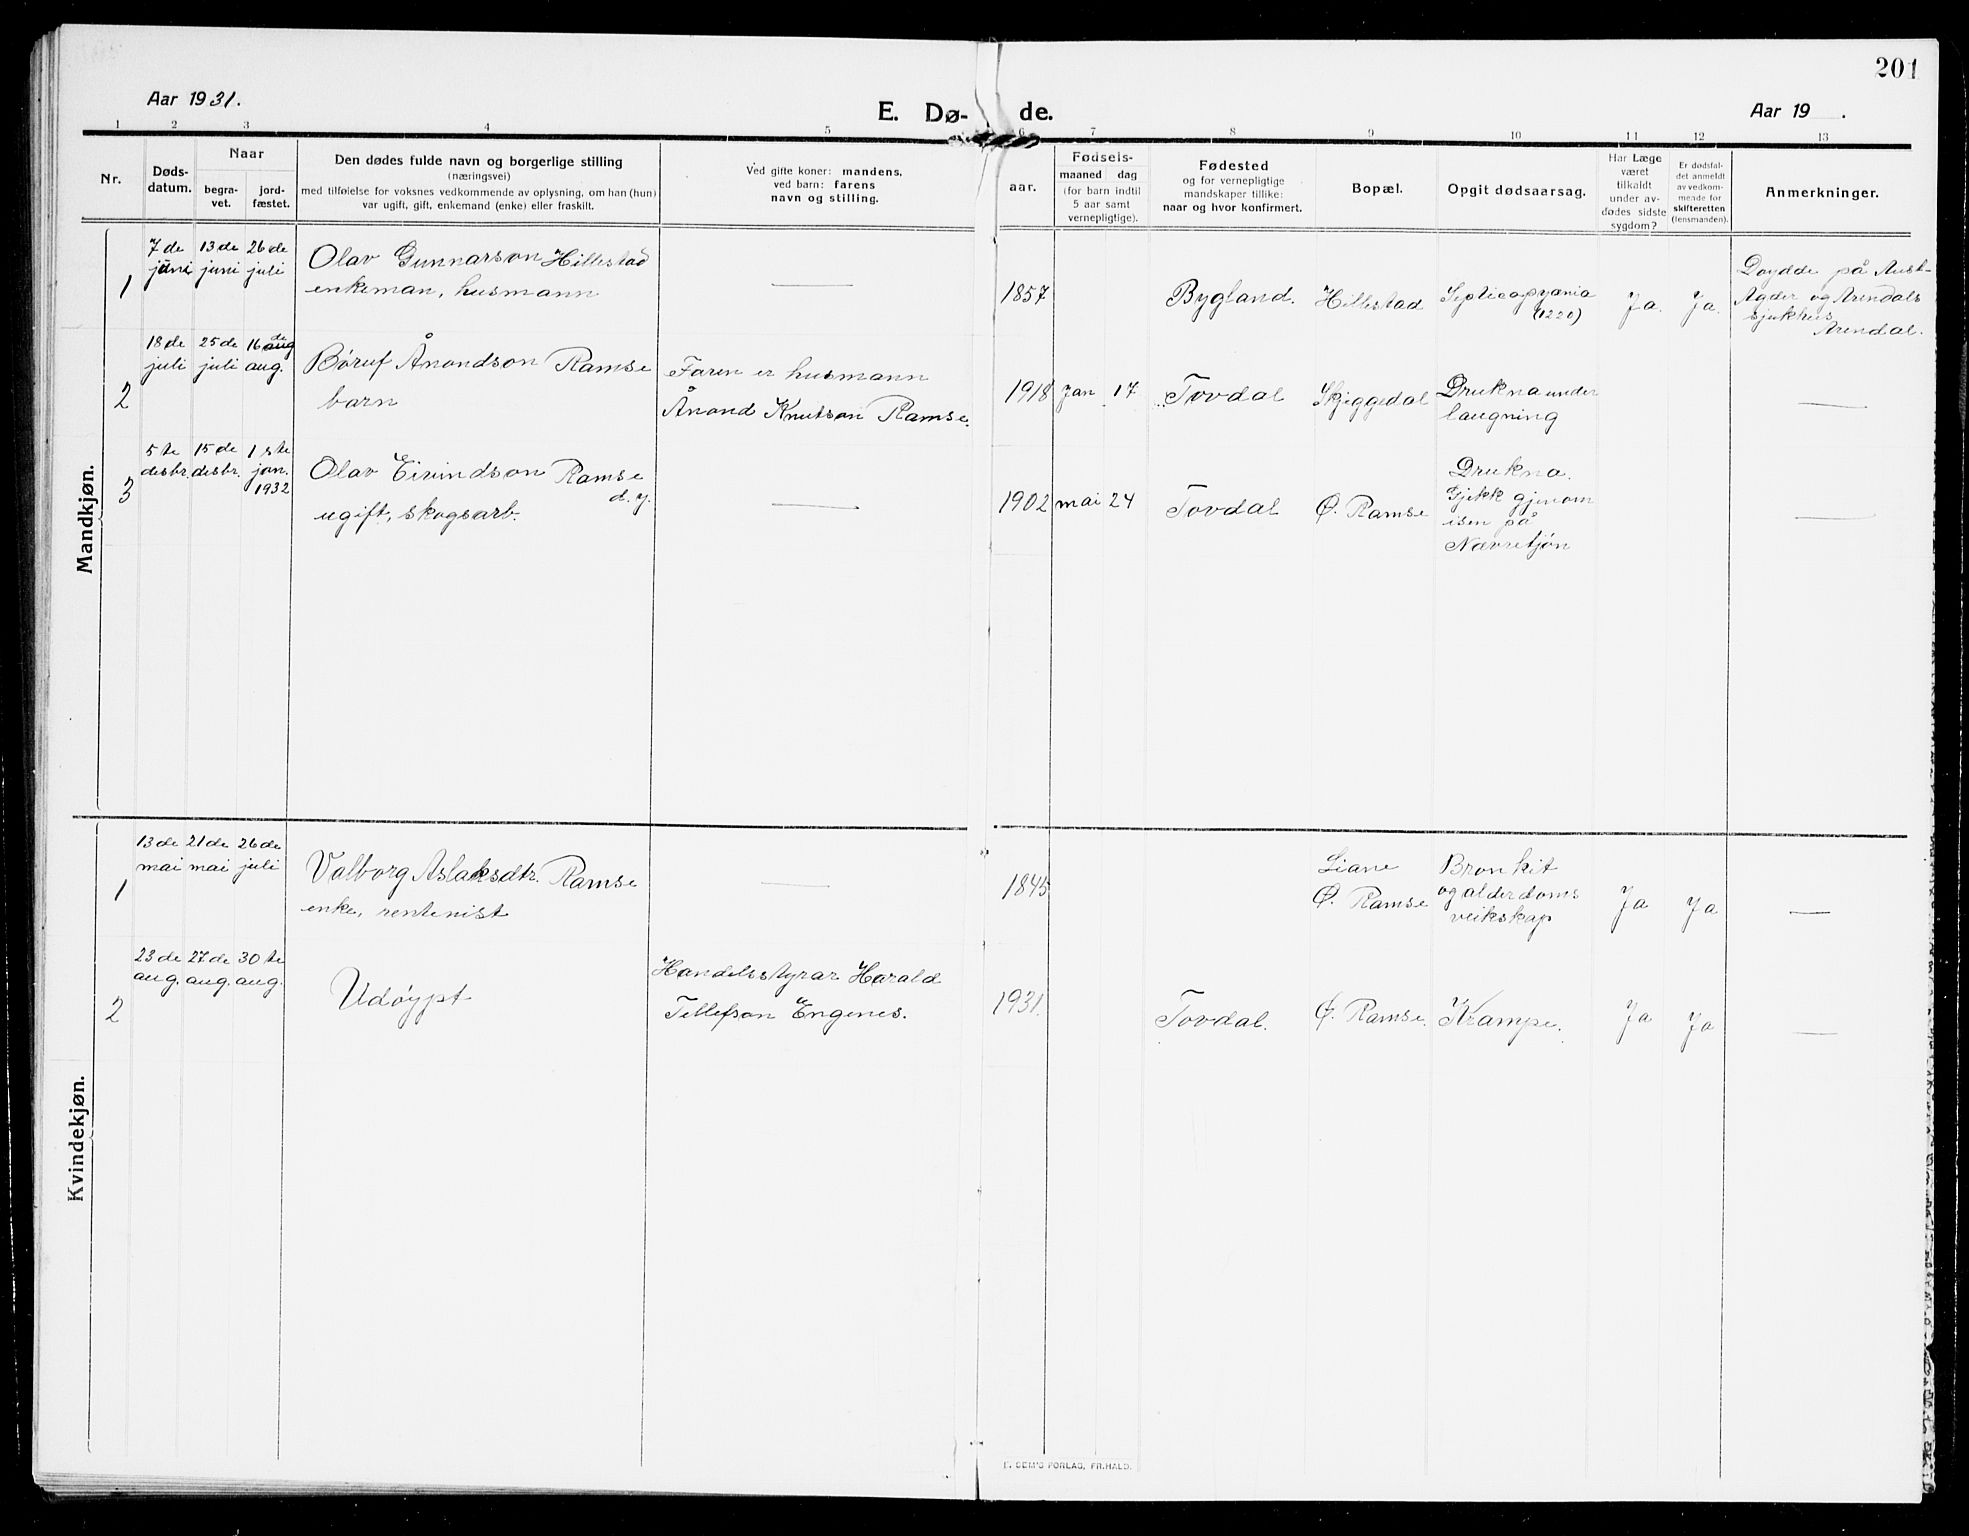 201
Aar 1931.
E. Dø- de.
Aar 19 .
1 2 3 4 5 6 7 8 9 10 11 12 13
Nr.
Døds-
datum.
Naar
begra-
vet.
jord-
fæstet.
Den dødes fulde navn og borgerlige stilling
(næringsvei)
med tilføielse for voksnes vedkommende av oplysning, om han (hun)
var ugift, gift, enkemand (enke) eller fraskilt.
Ved gifte koner: mandens,
ved barn: farens
navn og stilling.
aar.
Fødsels-
maaned dag
(for barn indtil
5 aar samt
vernepligtige).
Fødested
og for vernepligtige
mandskaper tillike:
naar og hvor konfirmert.
Bopæl.
Opgit dødsaarsag.
Har Læge
været
tilkaldt
under av-
dødes sidste
sygdom?
Er dødsfal-
det anmeldt
av vedkom-
mende for
skifteretten
(lensmanden).
Anmerkninger.
Mandkjøn.
1
7 de
juni
13 de
juni
26 de
juli
Olav Gunnarson Hillestad
enkeman, husmann
1857
Bygland.
Hillestad
(1220)
Ja.
Ja.
Døydde på Aust-
Agder og Arendals
sjukhus
Arendal.
2
18 de
juli
25 de
juli
16 de
aug
aug.
Børuf Ånondson Ramse
barn
Faren er husmann
Ånond Knutson Ramse.
1918 Jan 17
Tovdal
Skjeggedal
Drukna under
laugning
3
5 te
desbr.
15 de
desbr.
1 ste
jan.
1932
Olav Eivindson Ramse
d. y.
ugift, skogsarb.
1902 mai 24
Tovdal
Ø. Ramse
Drukna.
Gjekk gjenom
isen på
Nævretjøn
Kvindekjøn.
1
13 de
mai
21 de
mai
26 de
juli
Valborg Aslaksdtr. Ramse
enke, rentenist
1845
Liane
Ø. Ramse
Bronkit
og alderdoms
veikskap
Ja
Ja
2
23 de
aug.
27 de
aug.
30 te
aug.
Udøypt
Handelsstyrar Harald
Tellefson Engenes.
1931.
Tovdal.
Ø. Ramse.
Krampe.
Ja
Ja
E. SEM'S FORLAG, FR.HALD.